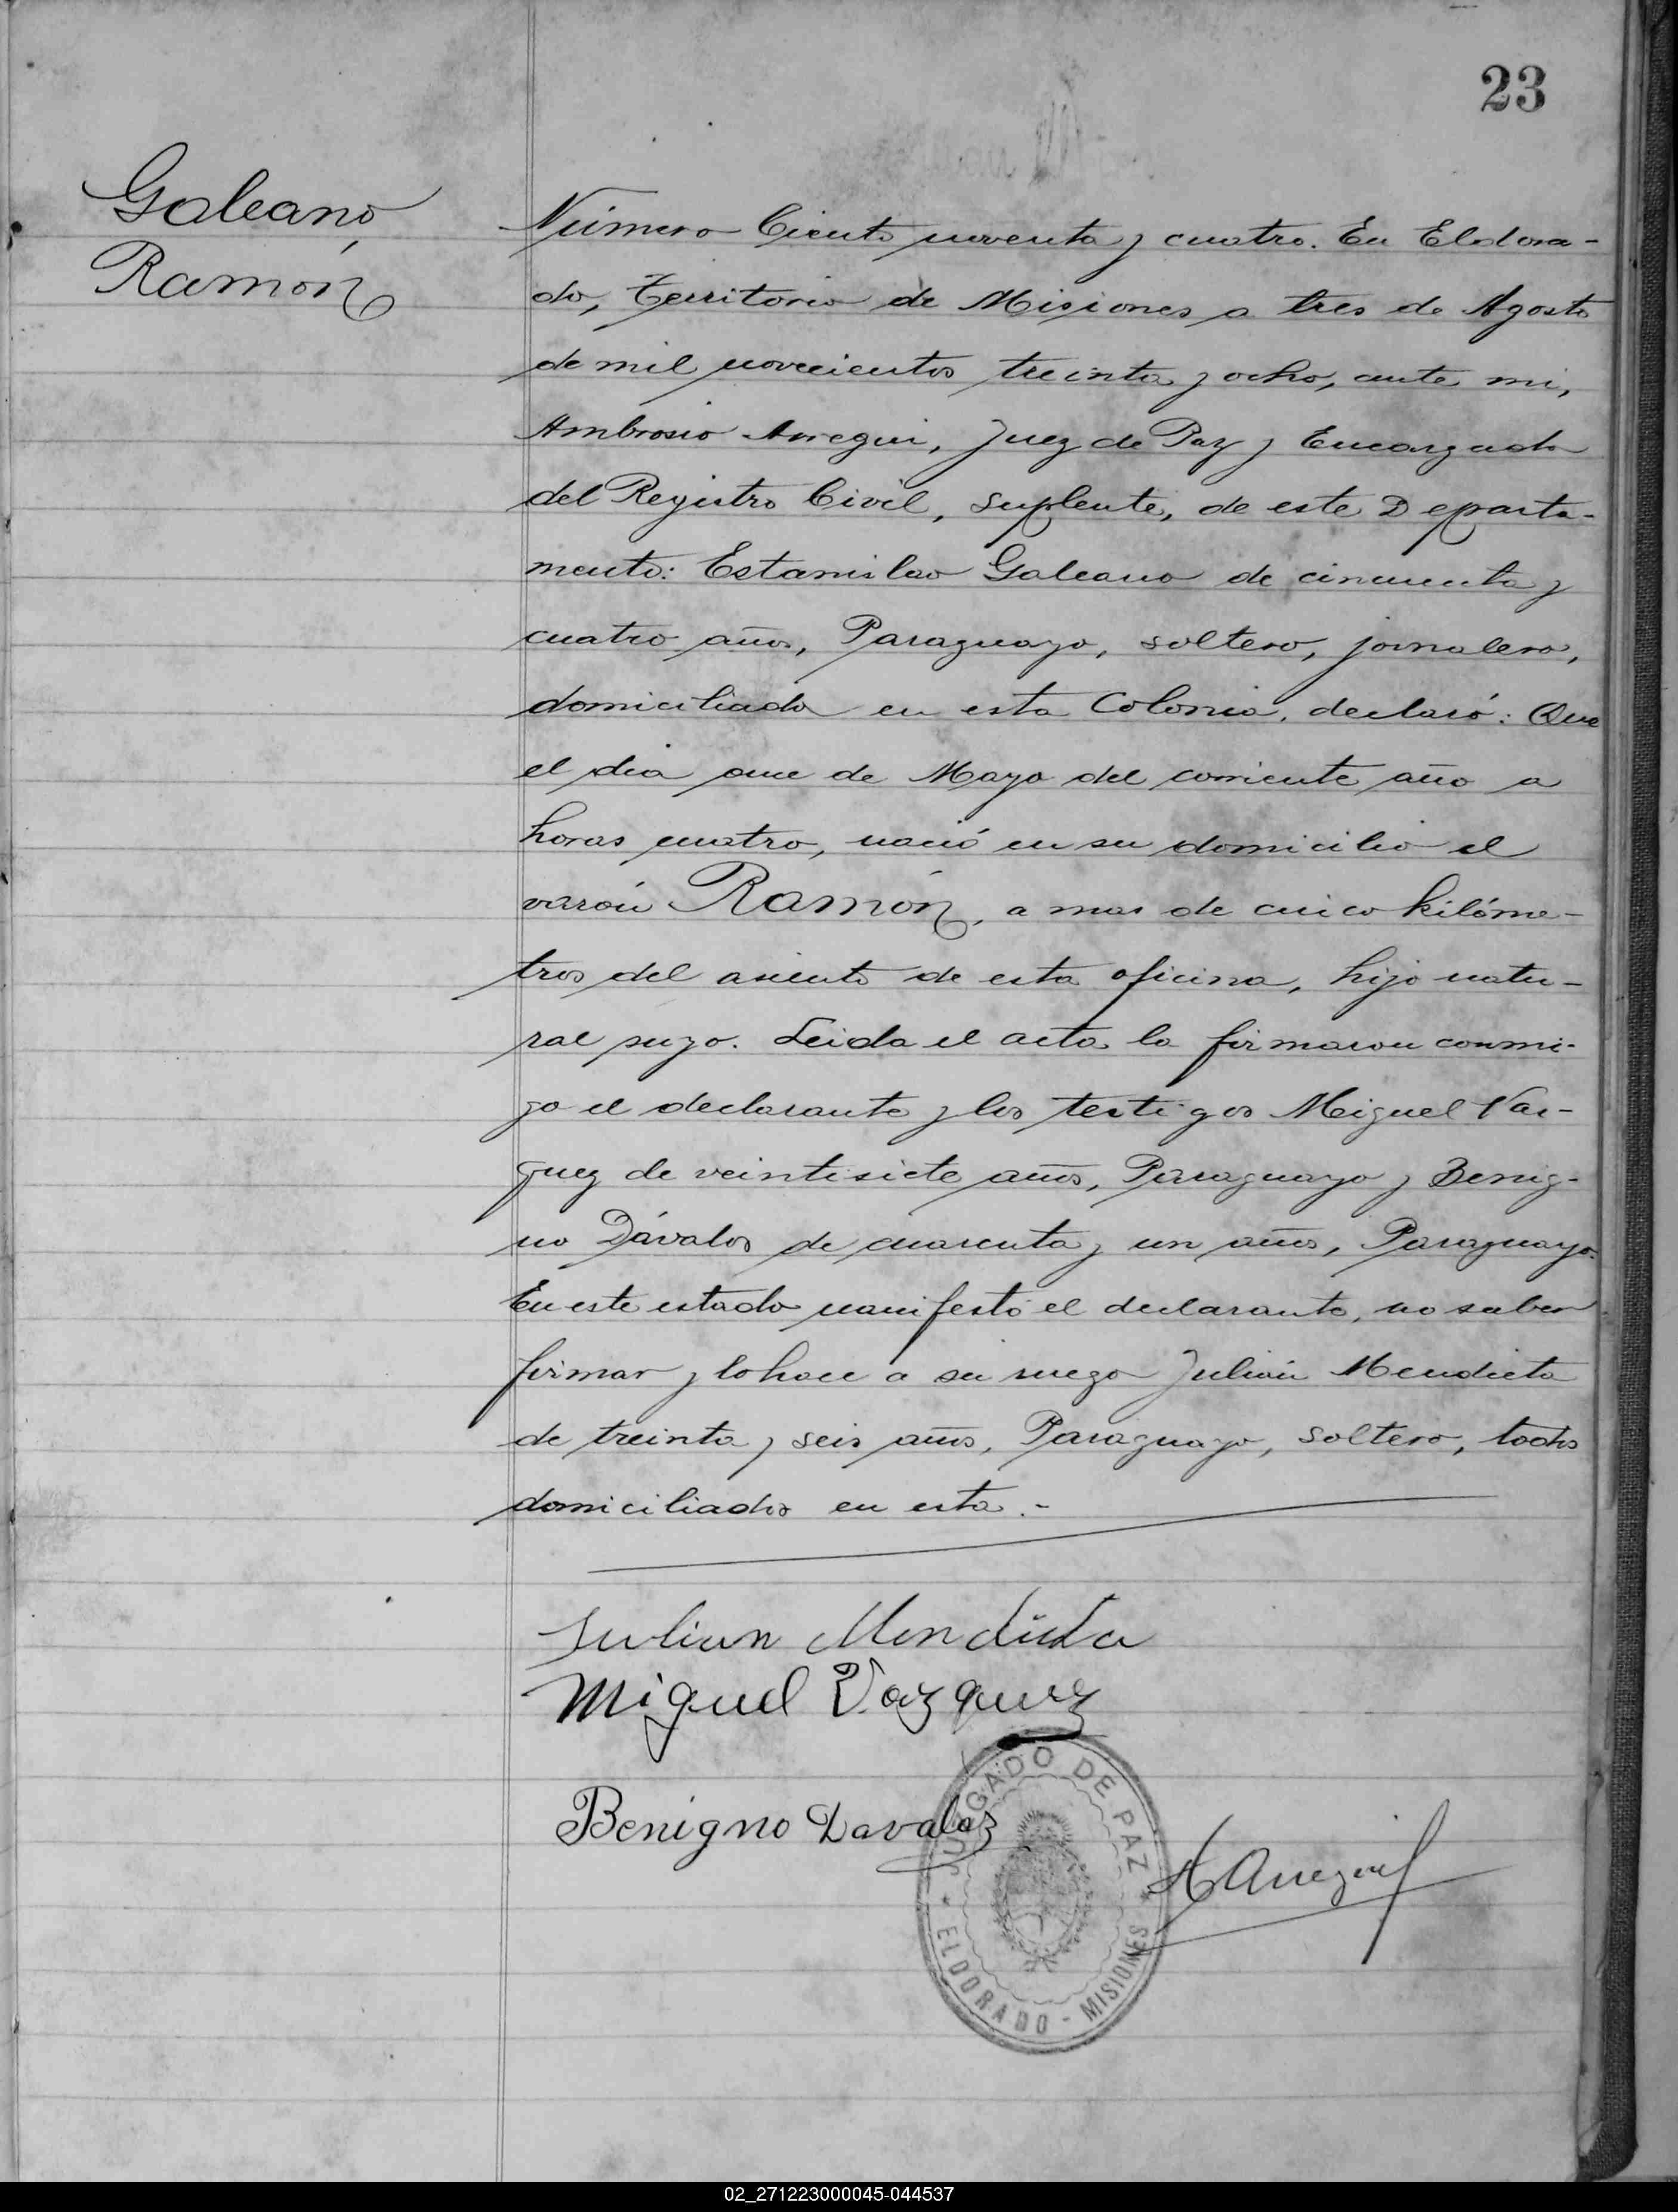 23
Galeano,
Ramón
Número Ciento noventa y cuatro. En Eldora-
do, Territorio de Misiones a tres de Agosto
de mil novecientos treinta y ocho, ante mi,
Ambrosio Arregui, Juez de Paz y Encargado
del Registro Civil, suplente, de este Departa-
mento: Estanislao Galeano de cincuenta y
cuatro años, Paraguayo, soltero, jornalero,
domiciliado en esta Colonia, declaró: Que
el dia once de Mayo del corriente año a
horas cuatro, nació en su domicilio el
varón Ramón, a mas de cinco kilóme-
tros del asiento de esta oficina, hijo natu-
ral suyo. Leida el acta la firmaron conmi-
go el declarante y los testigos Miguel Vas-
quez de veintisiete años, Paraguayo y Benig-
no Dávalos de cuarenta y un años, Paraguayo.
En este estado manifestó el declarante, no saber
firmar y lo hace a su ruego Julián Mendieta
de treinta y seis años, Paraguayo, soltero, todos
domiciliados en esta.-
Julian Mendieta
Miguel Vazquez
Benigno Davalos
A Arregui
JUZGADO DE PAZ
* ELDORADO - MISIONES *
02_271223000045-044537